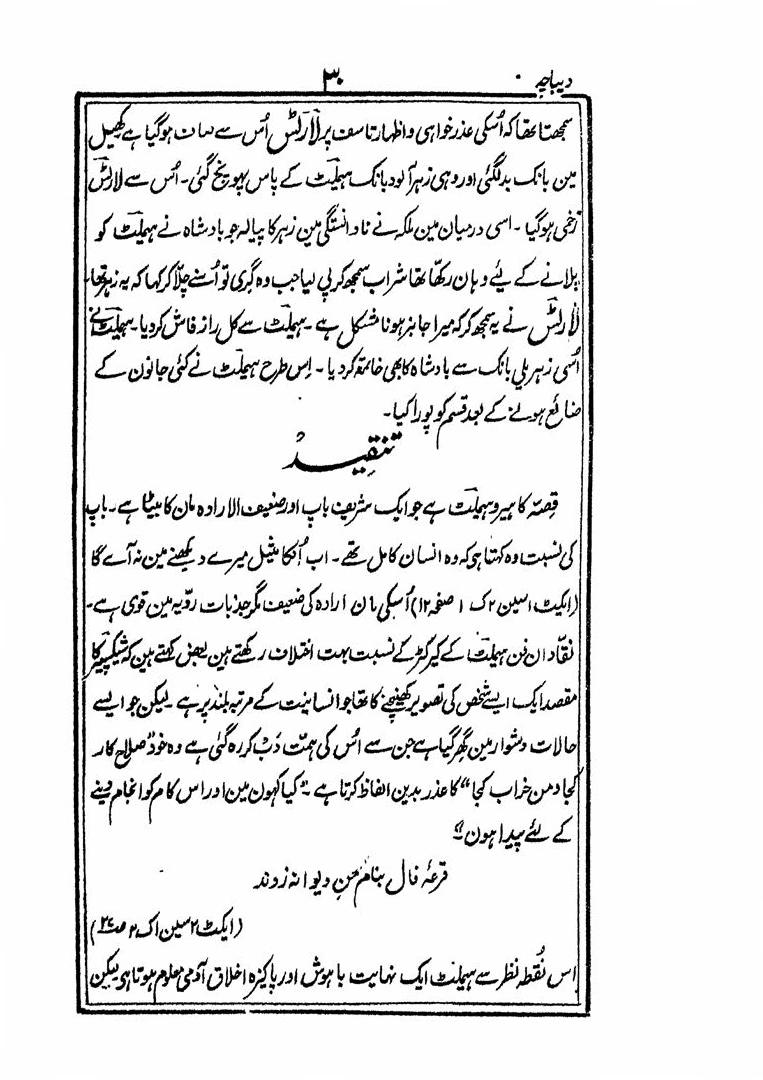 دیباچہ
۳۰
سمجھتا تھا کہ اُسکی عذر خواہی و اظہار تاسف پر لارٹس اُس سے صاف ہوگیا ہے کھیل
مین بانک بدلگئی اور وہی زہر آلود بانک ہیملیٹ کے پاس پہونچ گئی۔ اُس سے لارٹس
زخمی ہوگیا۔ اسی درمیان مین ملکہ نے نادانستگی مین زہر کا پیالہ جو بادشاہ نے ہیملیٹ کو
پلانے کے لیے وہان رکھا تھا شراب سمجھ کر پی لیا جب وہ گری تو اُسنے چلّا کر کہا کہ یہ زہر تھا۔
لارٹس نے یہ سمجھ کر کہ میرا جانبر ہونا مشکل ہے۔ ہیملیٹ سے کل راز فاش کردیا۔ ہیملیٹ نے
اُسی زہریلی بانک سے بادشاہ کا بھی خاتمہ کردیا۔ اِس طرح ہیملیٹ نے کئی جانون کے
ضائع ہونے کے بعد قسم کو پورا کیا۔
تنقید
قصّہ کا ہیرو ہیملیٹ ہے جو ایک شریف باپ اور ضعیف الارادہ مان کا بیٹا ہے۔ باپ
کی نسبت وہ کہتا ہی کہ وہ انسان کامل تھے۔ اب اُنکا مثیل میرے دیکھنے مین نہ آے گا
(ایکٹ ۱ سین ۲ ک ۱ صفحہ ۱۲) اُسکی مان ارادہ کی ضعیف مگر جذبات روّیہ مین قوی ہے۔
نقّادان فن ہیملٹ کے کیرکٹر کے نسبت بہت اختلاف رکھتے ہین بعض کہتے ہین کہ شیکسپیئر کا
مقصد ایک ایسے شخص کی تصویر کھینچنے کا تھا جو انسانیت کے مرتبہ بلند پر ہے۔ لیکن جو ایسے
حالات دشوار مین گھر گیا ہے جن سے اُس کی ہمّت دَب کر رہ گئی ہے وہ خود "صلاح کار
کجا و من خراب کجا" کا عذر بدین الفاظ کرتا ہے۔ "کیا کہون مین اور اس کام کو انجام دینے
کے لئے پیدا ہون"
قرعۂ فال بنام من دیوانہ زدند
(ایکٹ ۲ سین ا ک ۲
اس نُقطہ نظر سے ہیملٹ ایک نہایت باہوش اور پاکیزہ اخلاق آدمی معلوم ہوتا ہی لیکن